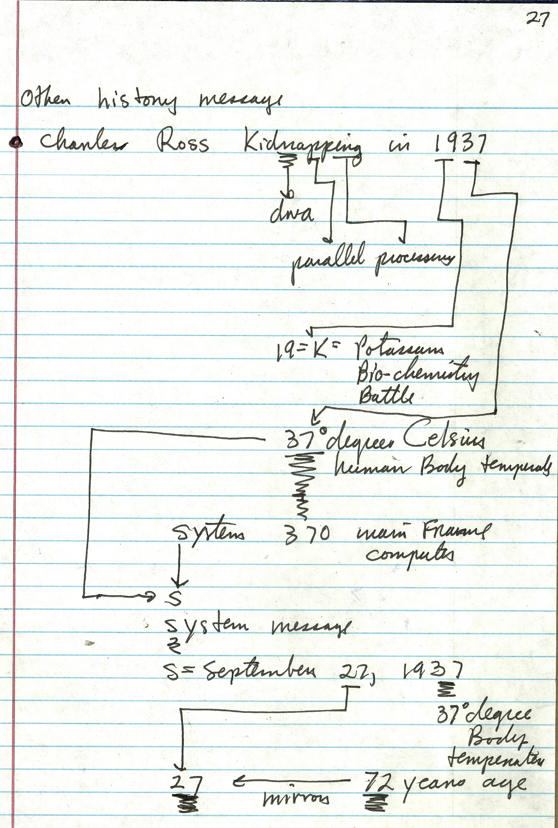 27
Other history message
• Charles Ross Kidnapping in 1937
dna
parallel processing
19=K= Potassam
Bio-chemistry
Battle
37° degrees Celsius
human Body temperate
system 370 main Frame
computer
S
system message
S= September 27, 1937
37° degree
Body
temperature
27 mirror 72 years age